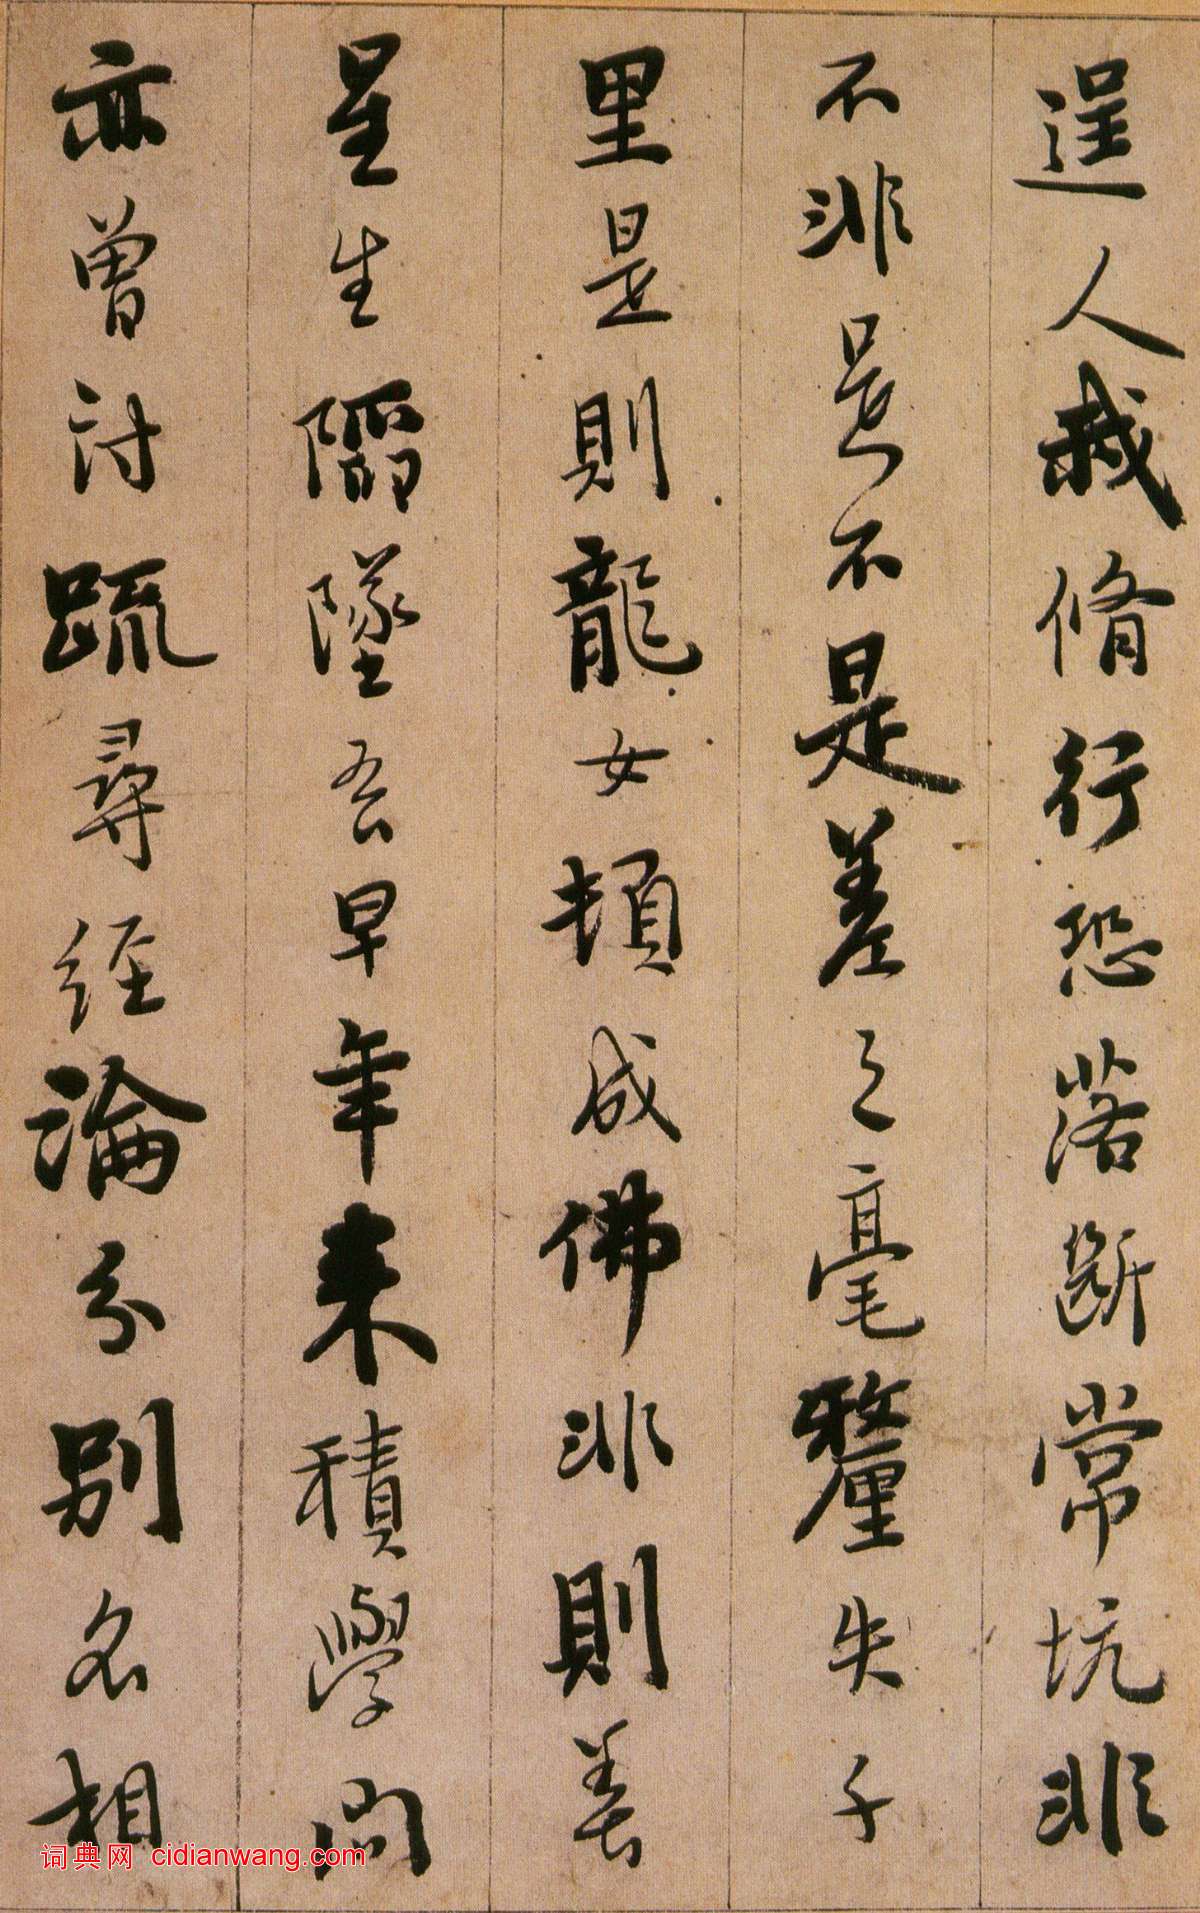 逞人我脩行恐落斷常坑非
不非是不是差之毫釐失千
里是則龍女頓成佛非則善
星生陷墜吾早年来積學問
亦曾討䟽尋經論分别名相
词典网 cidianwang.com